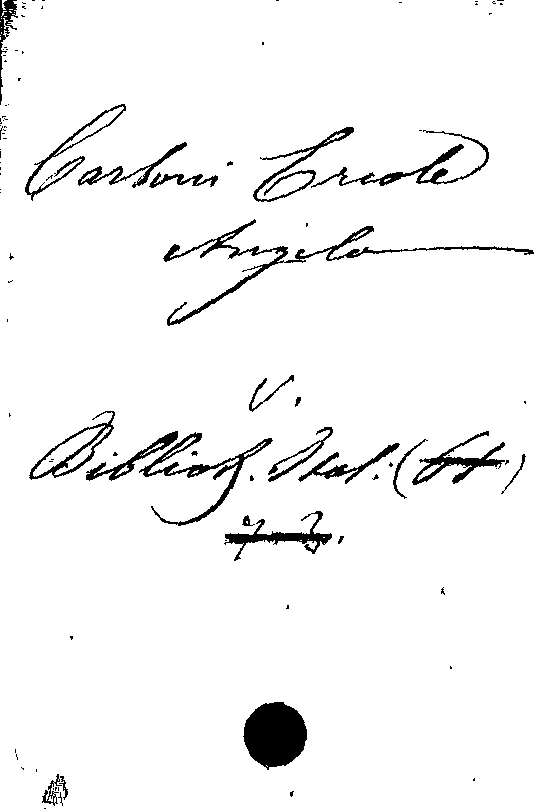 Carboni Ercole
Angelo
V.
Biblioth. Ital. (